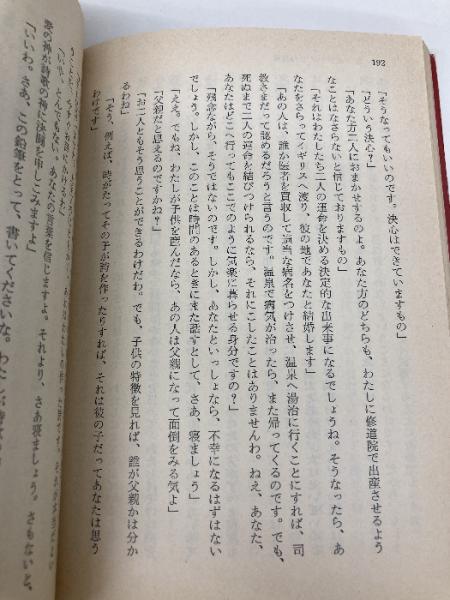 192
「そうなってもいいのです。決心はできていますもの」
「どういう決心?」
「あなた方二人におまかせするのよ。あなた方のどちらも、わたしに修道院で出産させるよう
なことはなさらないと信じておりますもの」
「それはわたしたち二人の運命を決める決定的な出来事になるでしょうね。そうなったら、あ
なたをさらってイギリスへ渡り、彼の地であなたと結婚します」
「あの人は、誰か医者を買収して適当な病名をつけさせ、温泉へ湯治に行くことにすれば、司
教さまだって認めるだろうと言うのです。温泉で病気が治ったら、また帰ってくるのです。でも、
死ぬまで二人の運命を結びつけられるなら、それにこしたことはありませんわ。ねえ、あなた、
あなたはどこへ行ってもここでのように気楽に暮らせる身分ですの?」
「残念ながら、そうではないのです。しかし、あなたといっしょなら、不幸になるはずはない
でしょう。しかし、このことは時間のあるときにまた話すとして、さあ、寝ましょう」
「ええ。でもね、わたしが子供を産んだなら、あの人は父親になって面倒をみる気よ」
「父親だと思えるのですかね?」
「お二人ともそう思うことができるわけだわ。でも、子供の特徴を見れば、誰が父親かは分か
るわね」
「そう、例えば、時がたってその子が詩を作ったりすれば、それは彼の子だってあなたは思う
わけです」
「いいえ、とんでもない。あなたの言葉を信じますよ。それより、さあ寝ましょう。さもないと、
の神が詩歌の神に決闘を申しこみますよ」
「いいわ。さあ、この鉛筆をとって、書いてくださいな。わた